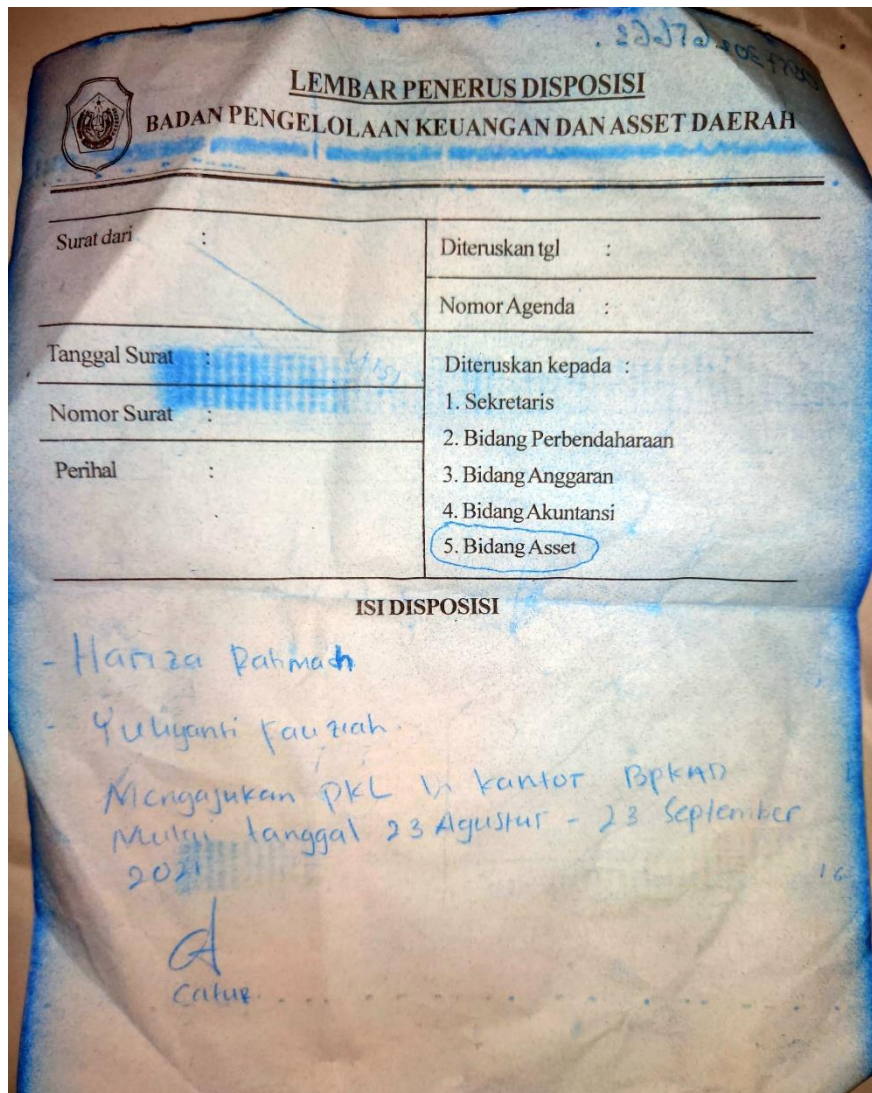 LEMBAR PENERUS DISPOSISI
BADAN PENGELOLAAN KEUANGAN DAN ASSET DAERAH
Surat dari :
Diteruskan tgl :
Nomor Agenda :
Tanggal Surat :
Nomor Surat :
Perihal :
Diteruskan kepada :
1. Sekretaris
2. Bidang Perbendaharaan
3. Bidang Anggaran
4. Bidang Akuntansi
5. Bidang Asset
ISI DISPOSISI
- Hariza Rahmah
- Yuliyanti Fauziah.
Mengajukan PKL di kantor BPKAD
Mulai tanggal 23 Agustus - 23 September
2021
Catur